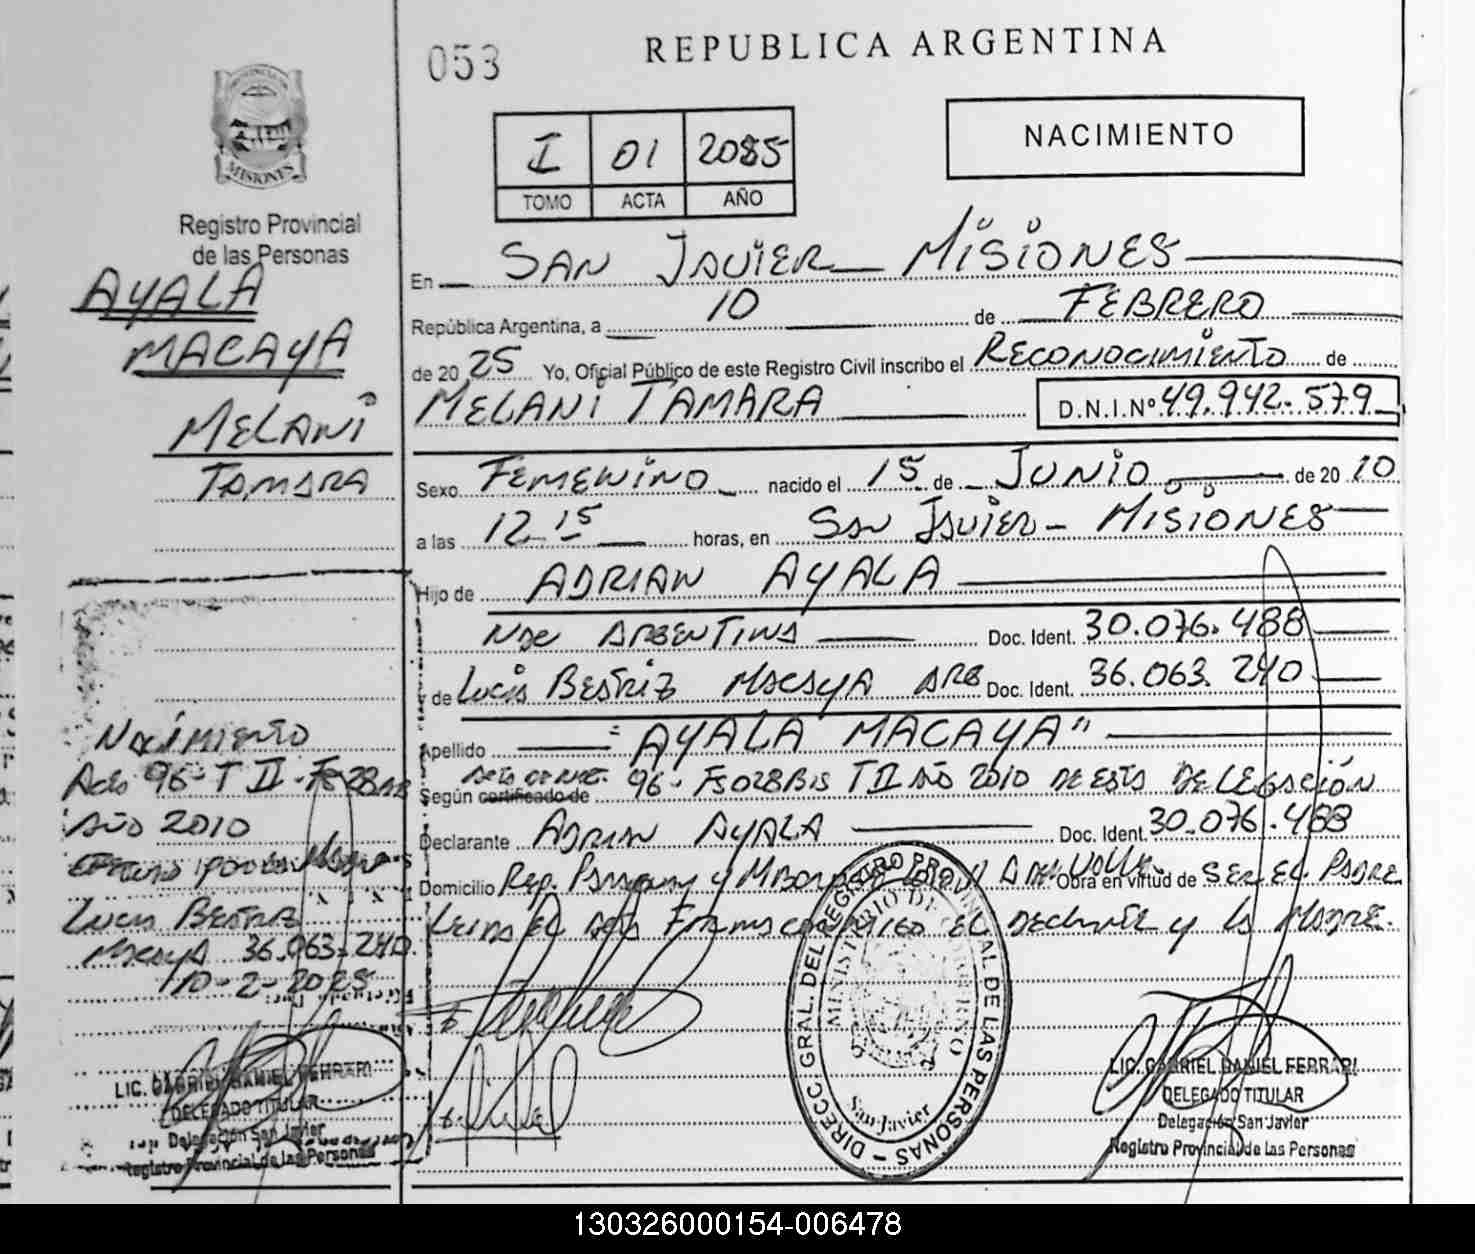 053
REPUBLICA ARGENTINA
PROVINCIA DE
MISIONES
Registro Provincial
de las Personas
I 01 2085
TOMO ACTA AÑO
NACIMIENTO
AYALA
MACAYA
MELANI
TAMARA
En SAN JAVIER MISIONES
República Argentina, a 10 de FEBRERO
de 20 25 Yo, Oficial Público de este Registro Civil inscribo el RECONOCIMIENTO de
MELANI TAMARA D.N.I.Nº 49.942.579
Sexo FEMENINO nacido el 15 de JUNIO de 20 10
a las 12.15 horas, en SAN JAVIER - MISIONES
Hijo de ADRIAN AYALA
NAC ARGENTINA Doc. Ident. 30.076.488
y de LUCIA BEATRIZ MACAYA ARG Doc. Ident. 36.063.240
Apellido "AYALA MACAYA"
Según certificado de ACTA DE NAC. 96 - FS 028 BIS T II AÑO 2010 DE ESTA DELEGACIÓN
Declarante ADRIAN AYALA Doc. Ident. 30.076.488
Domicilio REP. PARAGUAY Y Obra en virtud de SER EL PADRE
LEIDA EL ACTA FIRMAN EL DECLARANTE Y LA MADRE.
NACIMIENTO
ACTA 96 - T II - FS 28 BIS
AÑO 2010
LUCIA BEATRIZ
MACAYA 36.063.240
10-2-2025
LIC. GABRIEL DANIEL FERRARI
DELEGADO TITULAR
Delegación San Javier
Registro Provincial de las Personas
DIRECC. GRAL. DEL REGISTRO PROVINCIAL DE LAS PERSONAS
MINISTERIO DE GOBIERNO
San Javier
LIC. GABRIEL DANIEL FERRARI
DELEGADO TITULAR
Delegación San Javier
Registro Provincial de las Personas
130326000154-006478